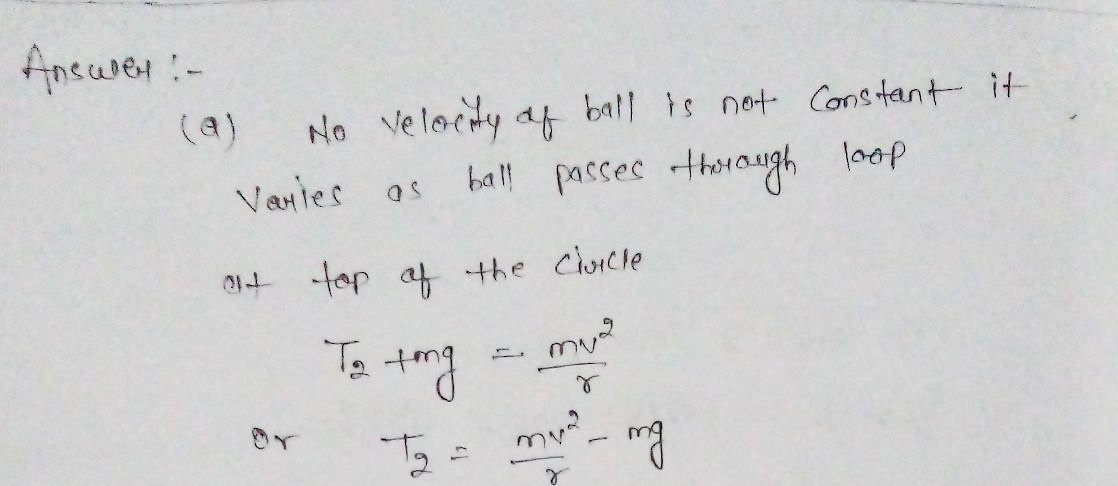 Answer :-
(a) No velocity of ball is not Constant it
Varies as ball passes through loop
at top of the circle
T₂ + mg = mv²/r
or T₂ = mv²/r - mg